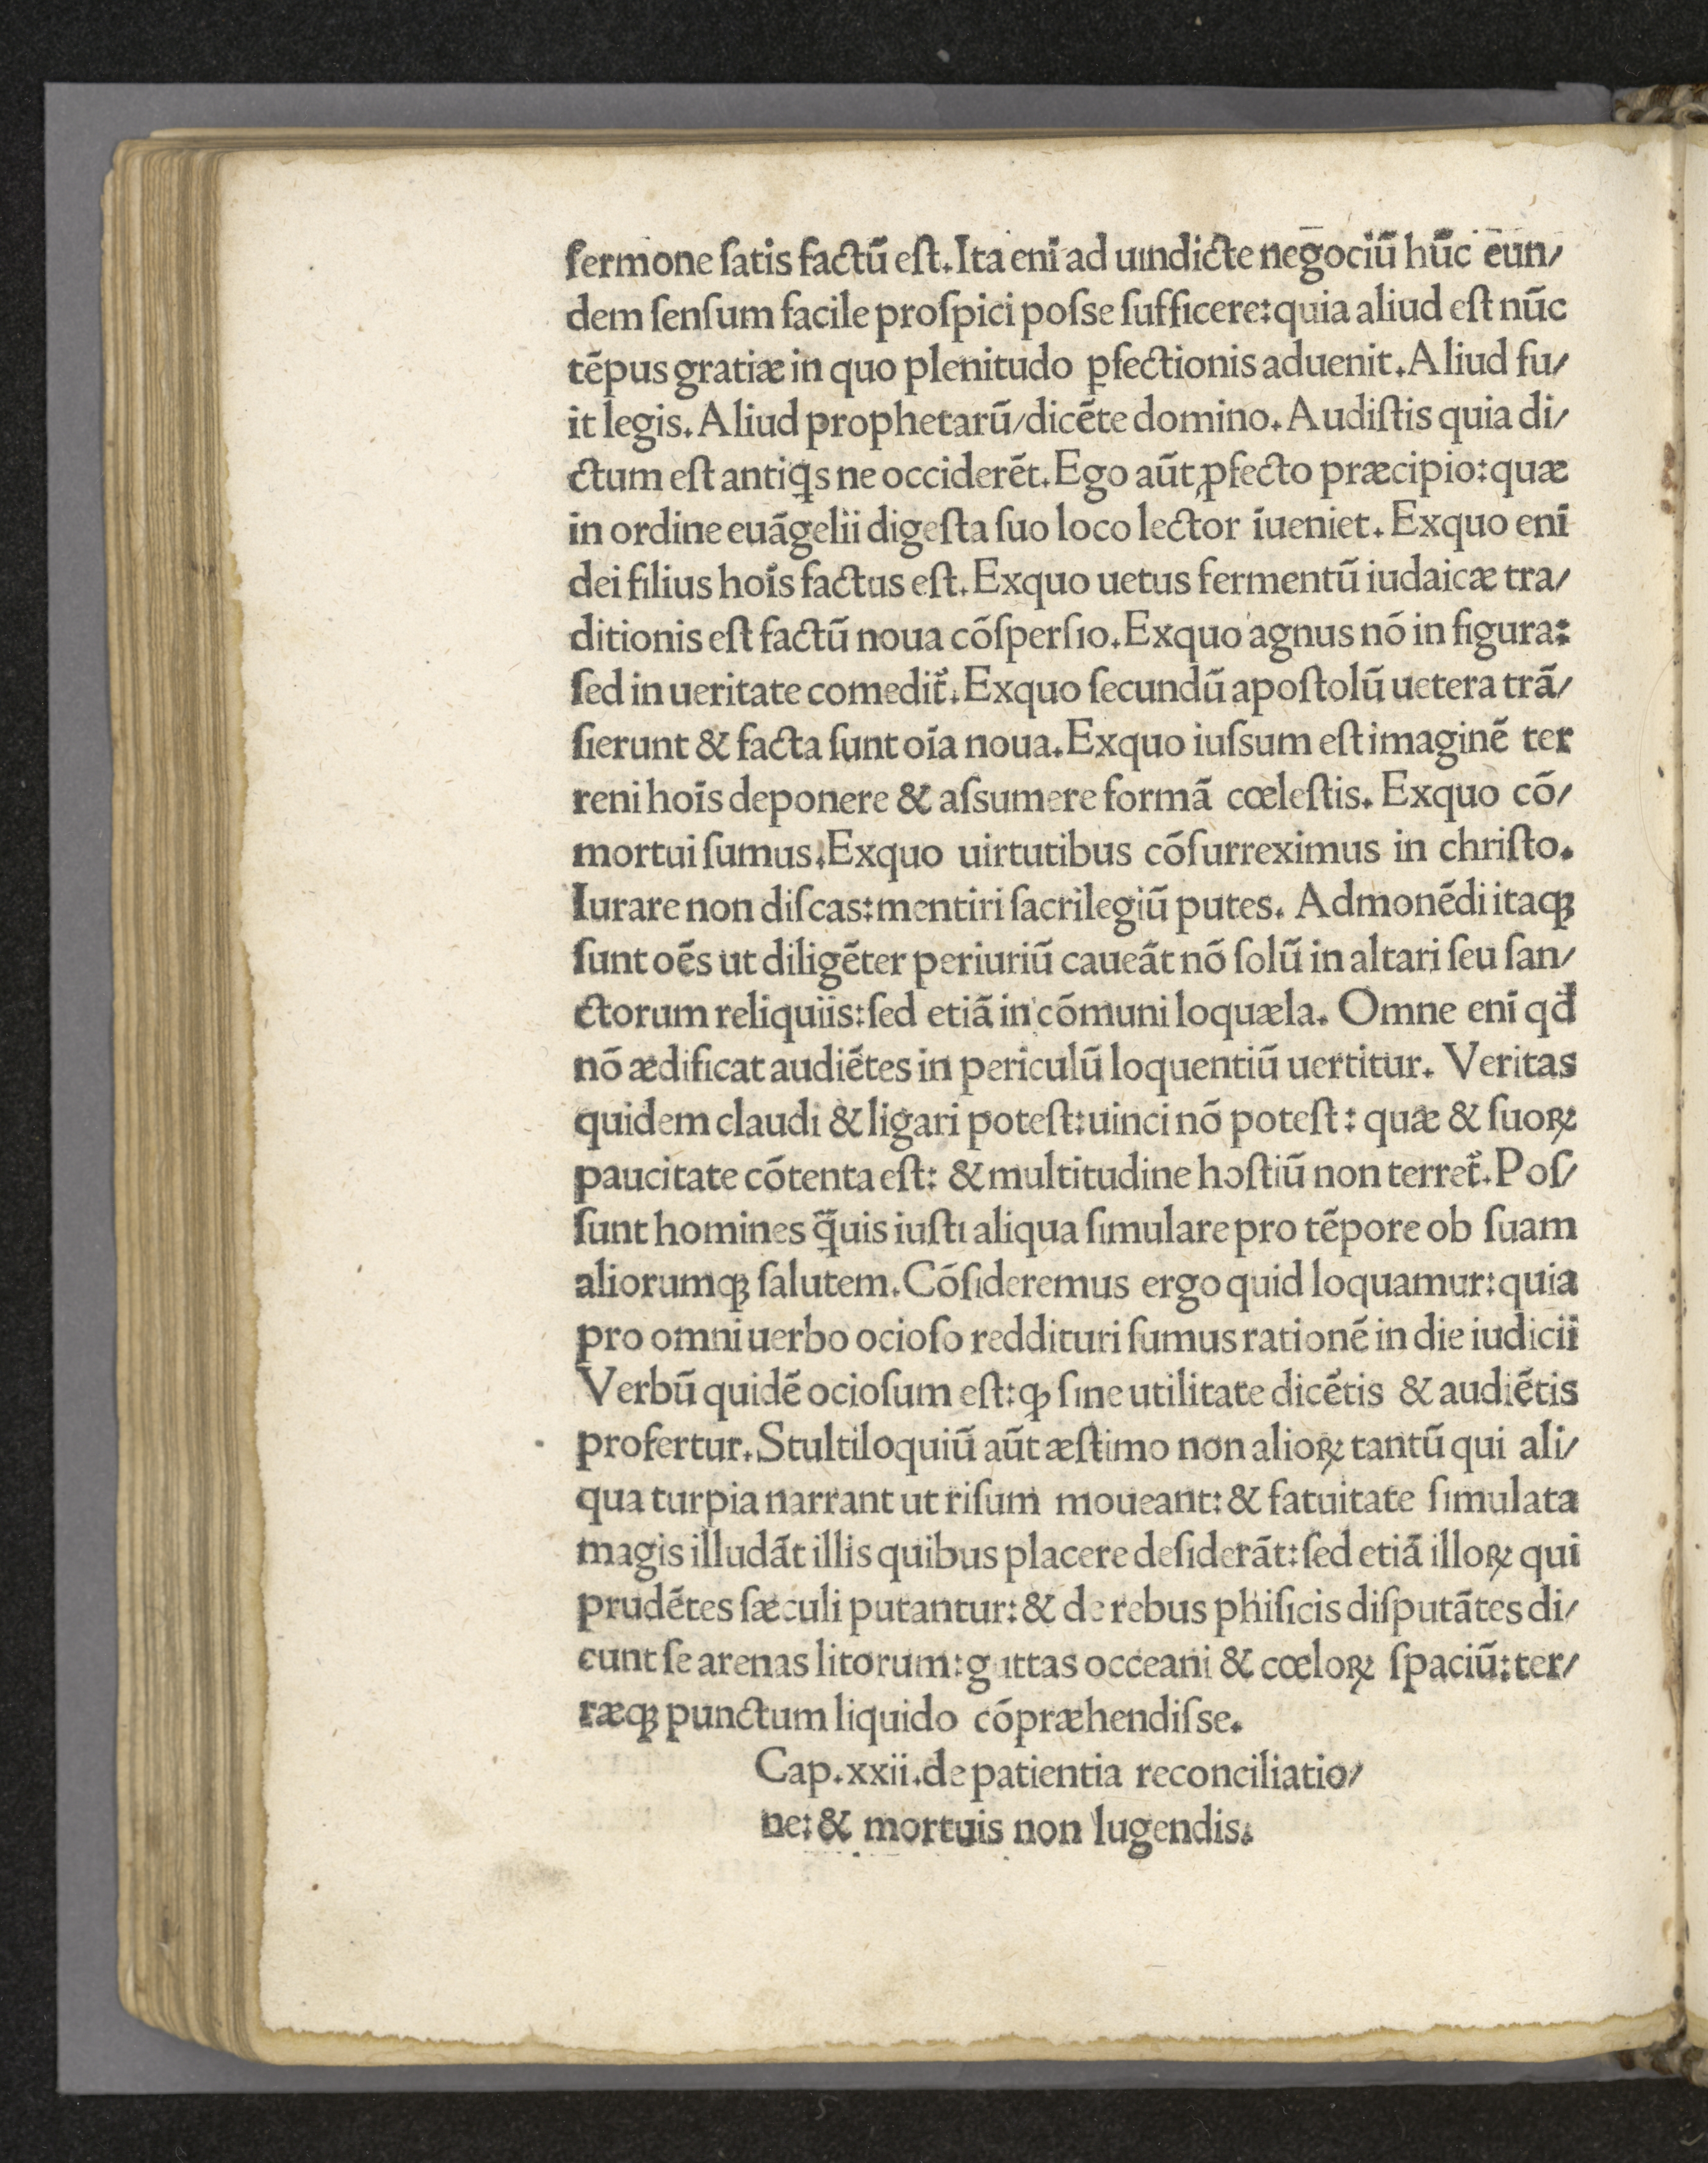 ſermone ſatis factū eſt. Ita enī ad uindicte negociū hūc eun/
dem ſenſum facile proſpici poſse ſufficere: quia aliud eſt nūc
tēpus gratiæ in quo plenitudo ꝑfectionis aduenit. Aliud fu/
it legis. Aliud prophetarū/dicēte domino. Audiſtis quia di/
ctum eſt antiqͥs ne occiderēt. Ego aūt ꝓfecto præcipio: quæ
in ordine euāgelii digeſta ſuo loco lector īueniet. Exquo enī
dei filius hoīs factus eſt. Exquo uetus fermentū iudaicæ tra/
ditionis eſt factū noua cōſperſio. Exquo agnus nō in figura:
ſed in ueritate comedit᷑. Exquo ſecundū apoſtolū uetera trā/
ſierunt & facta ſunt oīa noua. Exquo iuſsum eſt imaginē ter
reni hoīs deponere & aſsumere formā cœleſtis. Exquo cō/
mortui ſumus. Exquo uirtutibus cōſurreximus in chriſto.
Iurare non diſcas: mentiri ſacrilegiū putes. Admonēdi itaqꝫ
ſunt oēs ut diligēter periuriū caueāt nō ſolū in altari ſeu ſan/
ctorum reliquiis: ſed etiā in cōmuni loquæla. Omne enī qđ
nō ædificat audiētes in periculū loquentiū uertitur. Veritas
quidem claudi & ligari poteſt: uinci nō poteſt: quæ & ſuoꝝ
paucitate cōtenta eſt: & multitudine hoſtiū non terret᷑. Poſ/
ſunt homines q̄uis iuſti aliqua ſimulare pro tēpore ob ſuam
aliorumqꝫ ſalutem. Cōſideremus ergo quid loquamur: quia
pro omni uerbo ocioſo reddituri ſumus rationē in die iudicii
Verbū quidē ocioſum eſt: ꝙ ſine utilitate dicētis & audiētis
profertur. Stultiloquiū aūt æſtimo non alioꝝ tantū qui ali/
qua turpia narrant ut riſum moueant: & fatuitate ſimulata
magis illudāt illis quibus placere deſiderāt: ſed etiā illoꝝ qui
prudētes ſæculi putantur: & de rebus phiſicis diſputātes di/
cunt ſe arenas litorum: guttas occeani & cœloꝝ ſpaciū: ter/
ræqꝫ punctum liquido cōpræhendiſse.
Cap. xxii. de patientia reconciliatio/
ne: & mortuis non lugendis.